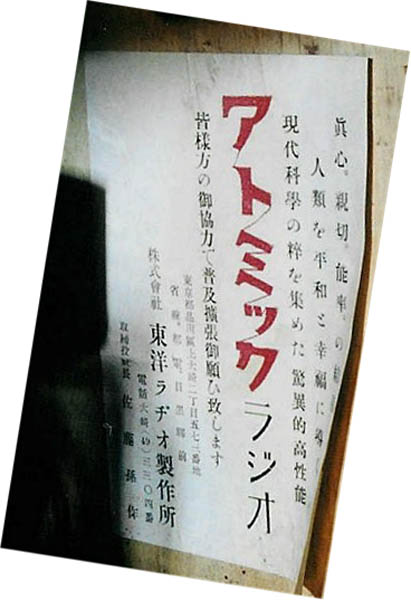 眞心。親切。能率。の
人類を平和と幸福に導
現代科學の粋を集めた驚異的高性能
アトミックラジオ
皆様方の御協力で普及擴張御願ひ致します
東京都品川區上大崎二丁目五七二番地
省線。都電。目黒驛前
株式會社 東洋ラヂオ製作所
電話大崎(49)三三〇四番
取締役社長 佐藤孫